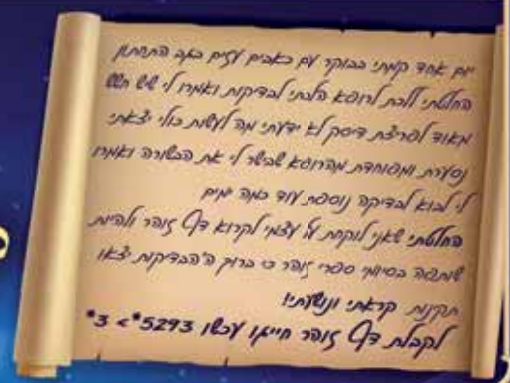 יום אחד קמתי בבוקר עם כאבים עזים בגב התחתון
החלטתי ללכת לרופא הלכתי לבדיקות ואמרו לי שיש חשש
מאוד לפריצת דיסק לא ידעתי מה לעשות כולי יצאתי
נסערת ומפוחדת מהרופא שבישר לי את הבשורה ואמרו
לי לבוא לבדיקה נוספת עוד כמה ימים
החלטתי שאני לוקחת על עצמי לקרוא דף זוהר ולהיות
שותפה בסיומי ספרי זוהר כי ברוק ה'הבדיקות יצאו
תקינות קראתי ונושעתי!
לקבלת דף זוהר חייגו עכשיו 5293* > 3*